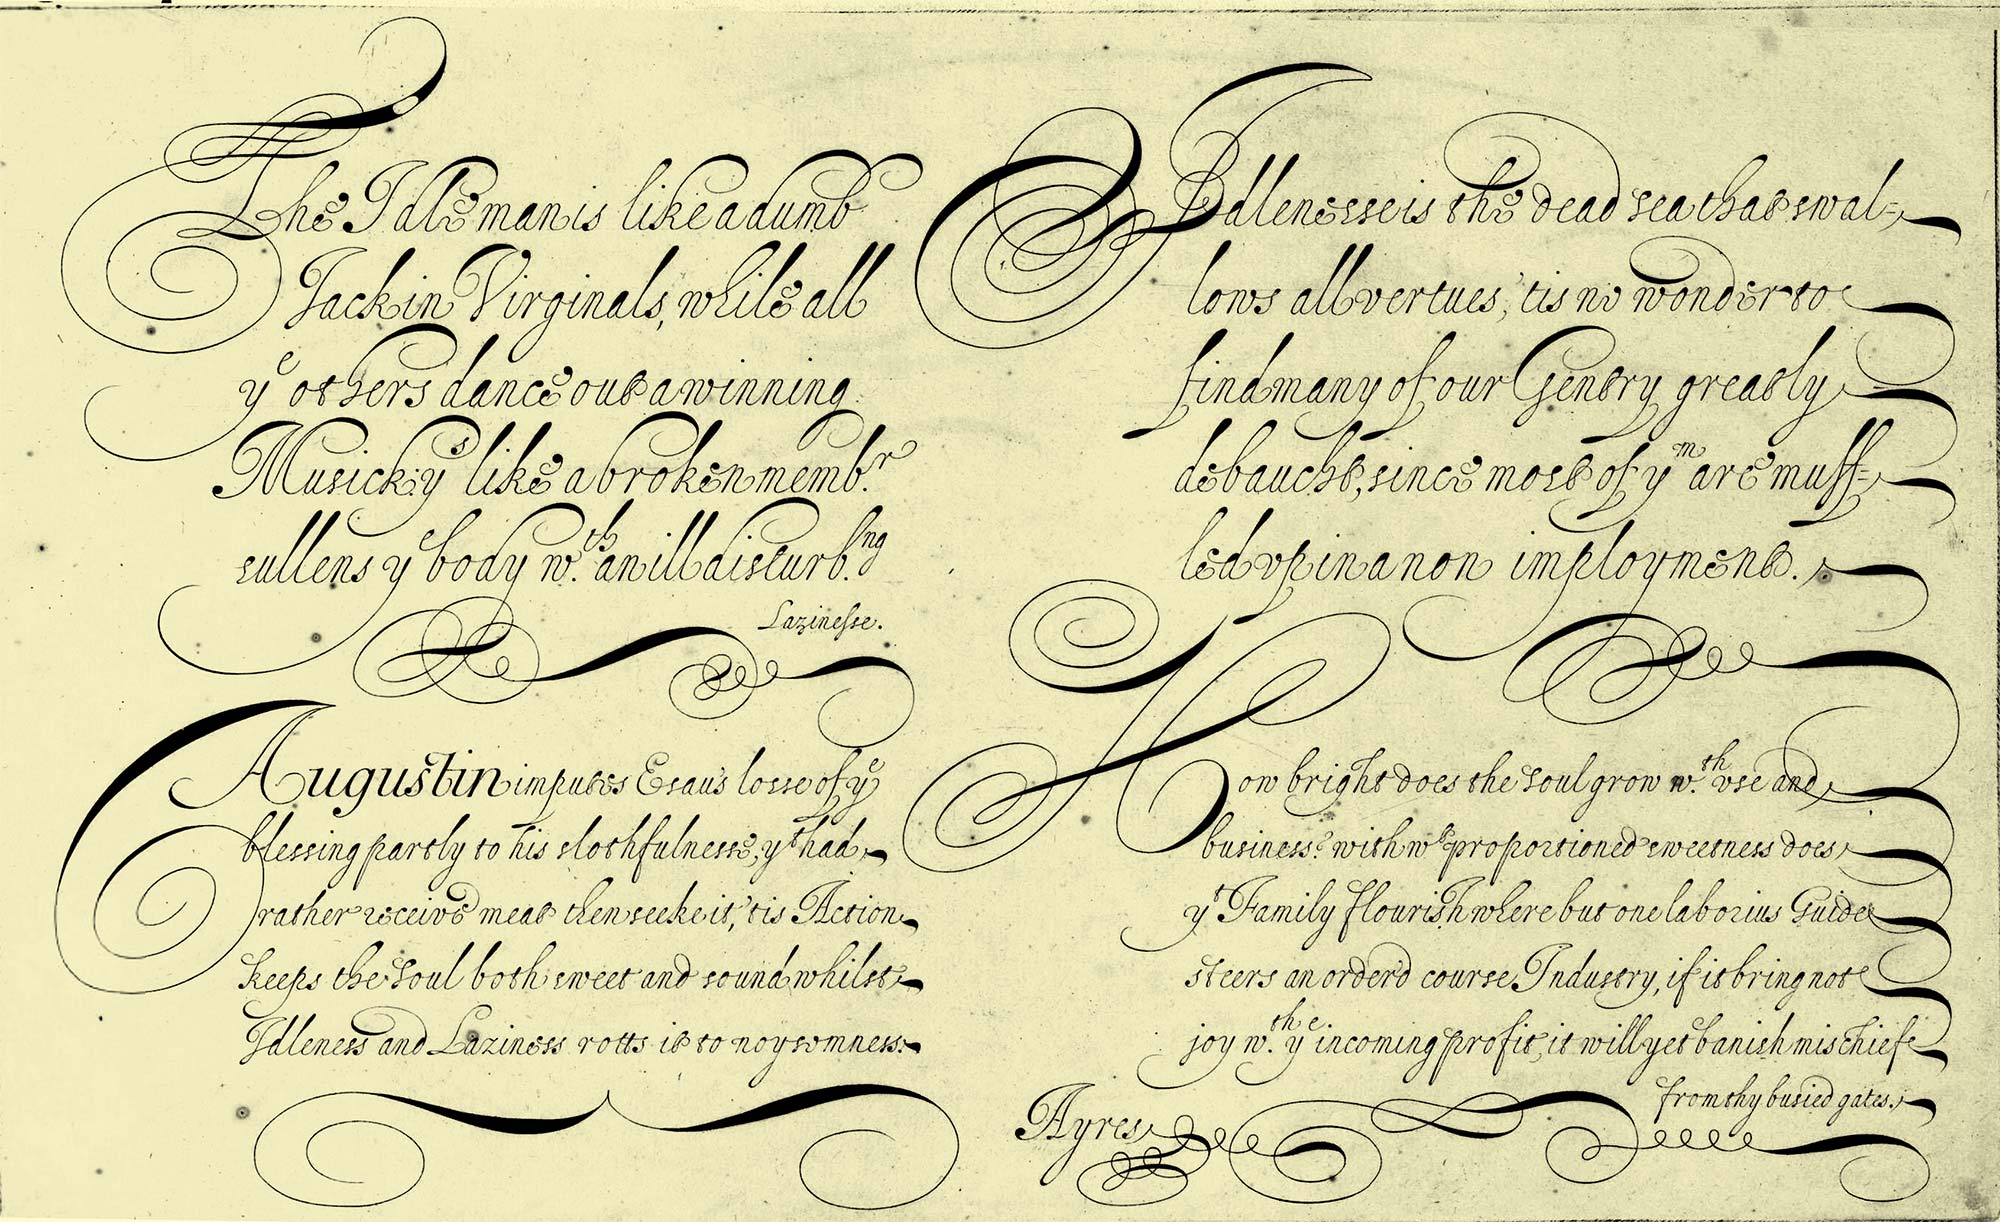 The Idle man is like a dumb
Jack in Virginals, while all
yᵉ others dance out a winning
Musick: yˢ like a broken membʳ
sullens yᵉ body wᵗʰ an ill disturbⁿᵍ
Lazinesse.
Idlenesse is the dead sea that swal=
lows all vertues, 'tis no wonder to
find many of our Gentry greatly
debaucht, since most of yᵐ are muff=
led vp in a non imployment.
Augustin imputes Esau's losse of yᵉ
blessing partly to his slothfulnesse, yᵗ had
rather receive meat then seeke it, 'tis Action
keeps the Soul both sweet and sound, whilst
Idleness and Laziness rotts it to noysomness.
How bright does the Soul grow wᵗʰ vse and
business? with wᵗ proportioned sweetness does
yᵗ Family flourish where but one laborius Guide
steers an order'd course, Industry, if it bring not
joy wᵗʰ yᵉ incoming profit, it will yet banish mischiefe
from thy busied gates.
Ayres